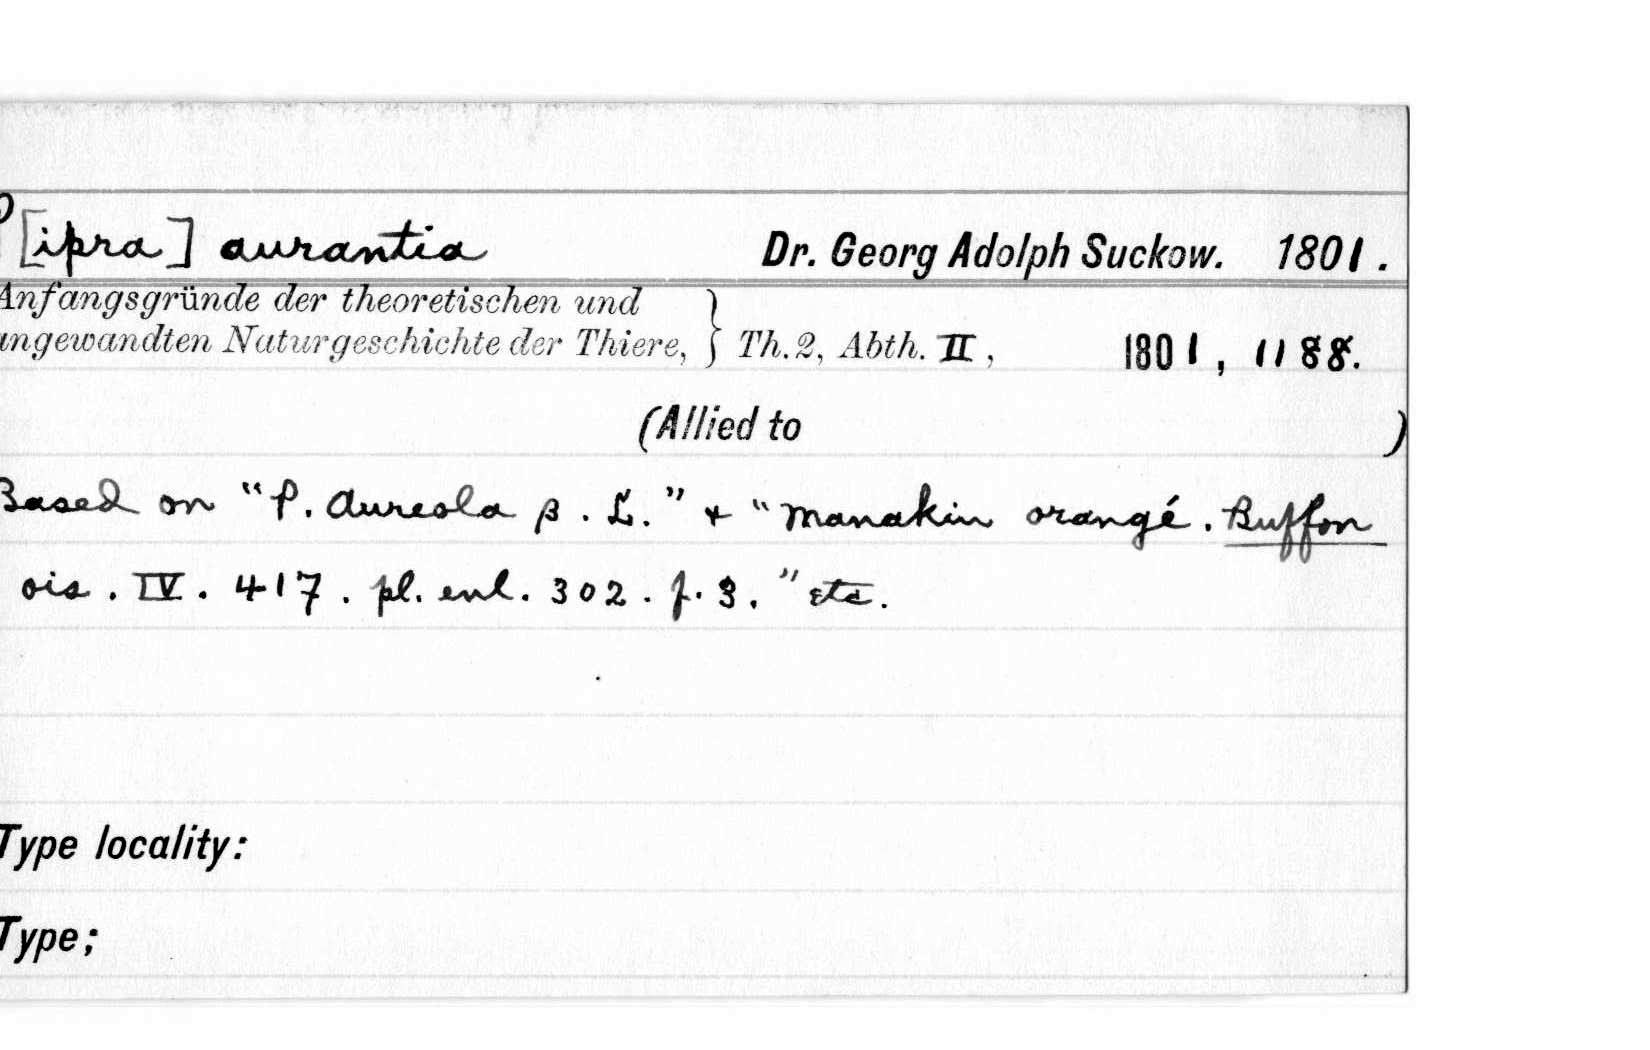 P[ipra] aurantia Dr. Georg Adolph Suckow. 1801.
Anfangsgründe der theoretischen und
angewandten Naturgeschichte der Thiere, } Th. 2, Abth. II, 1801, 1188.
(Allied to )
Based on "P. Aureola β. L." + "Manakin orangé. Buffon
ois. IV. 417. pl. enl. 302. f. 3." etc.
Type locality:
Type;